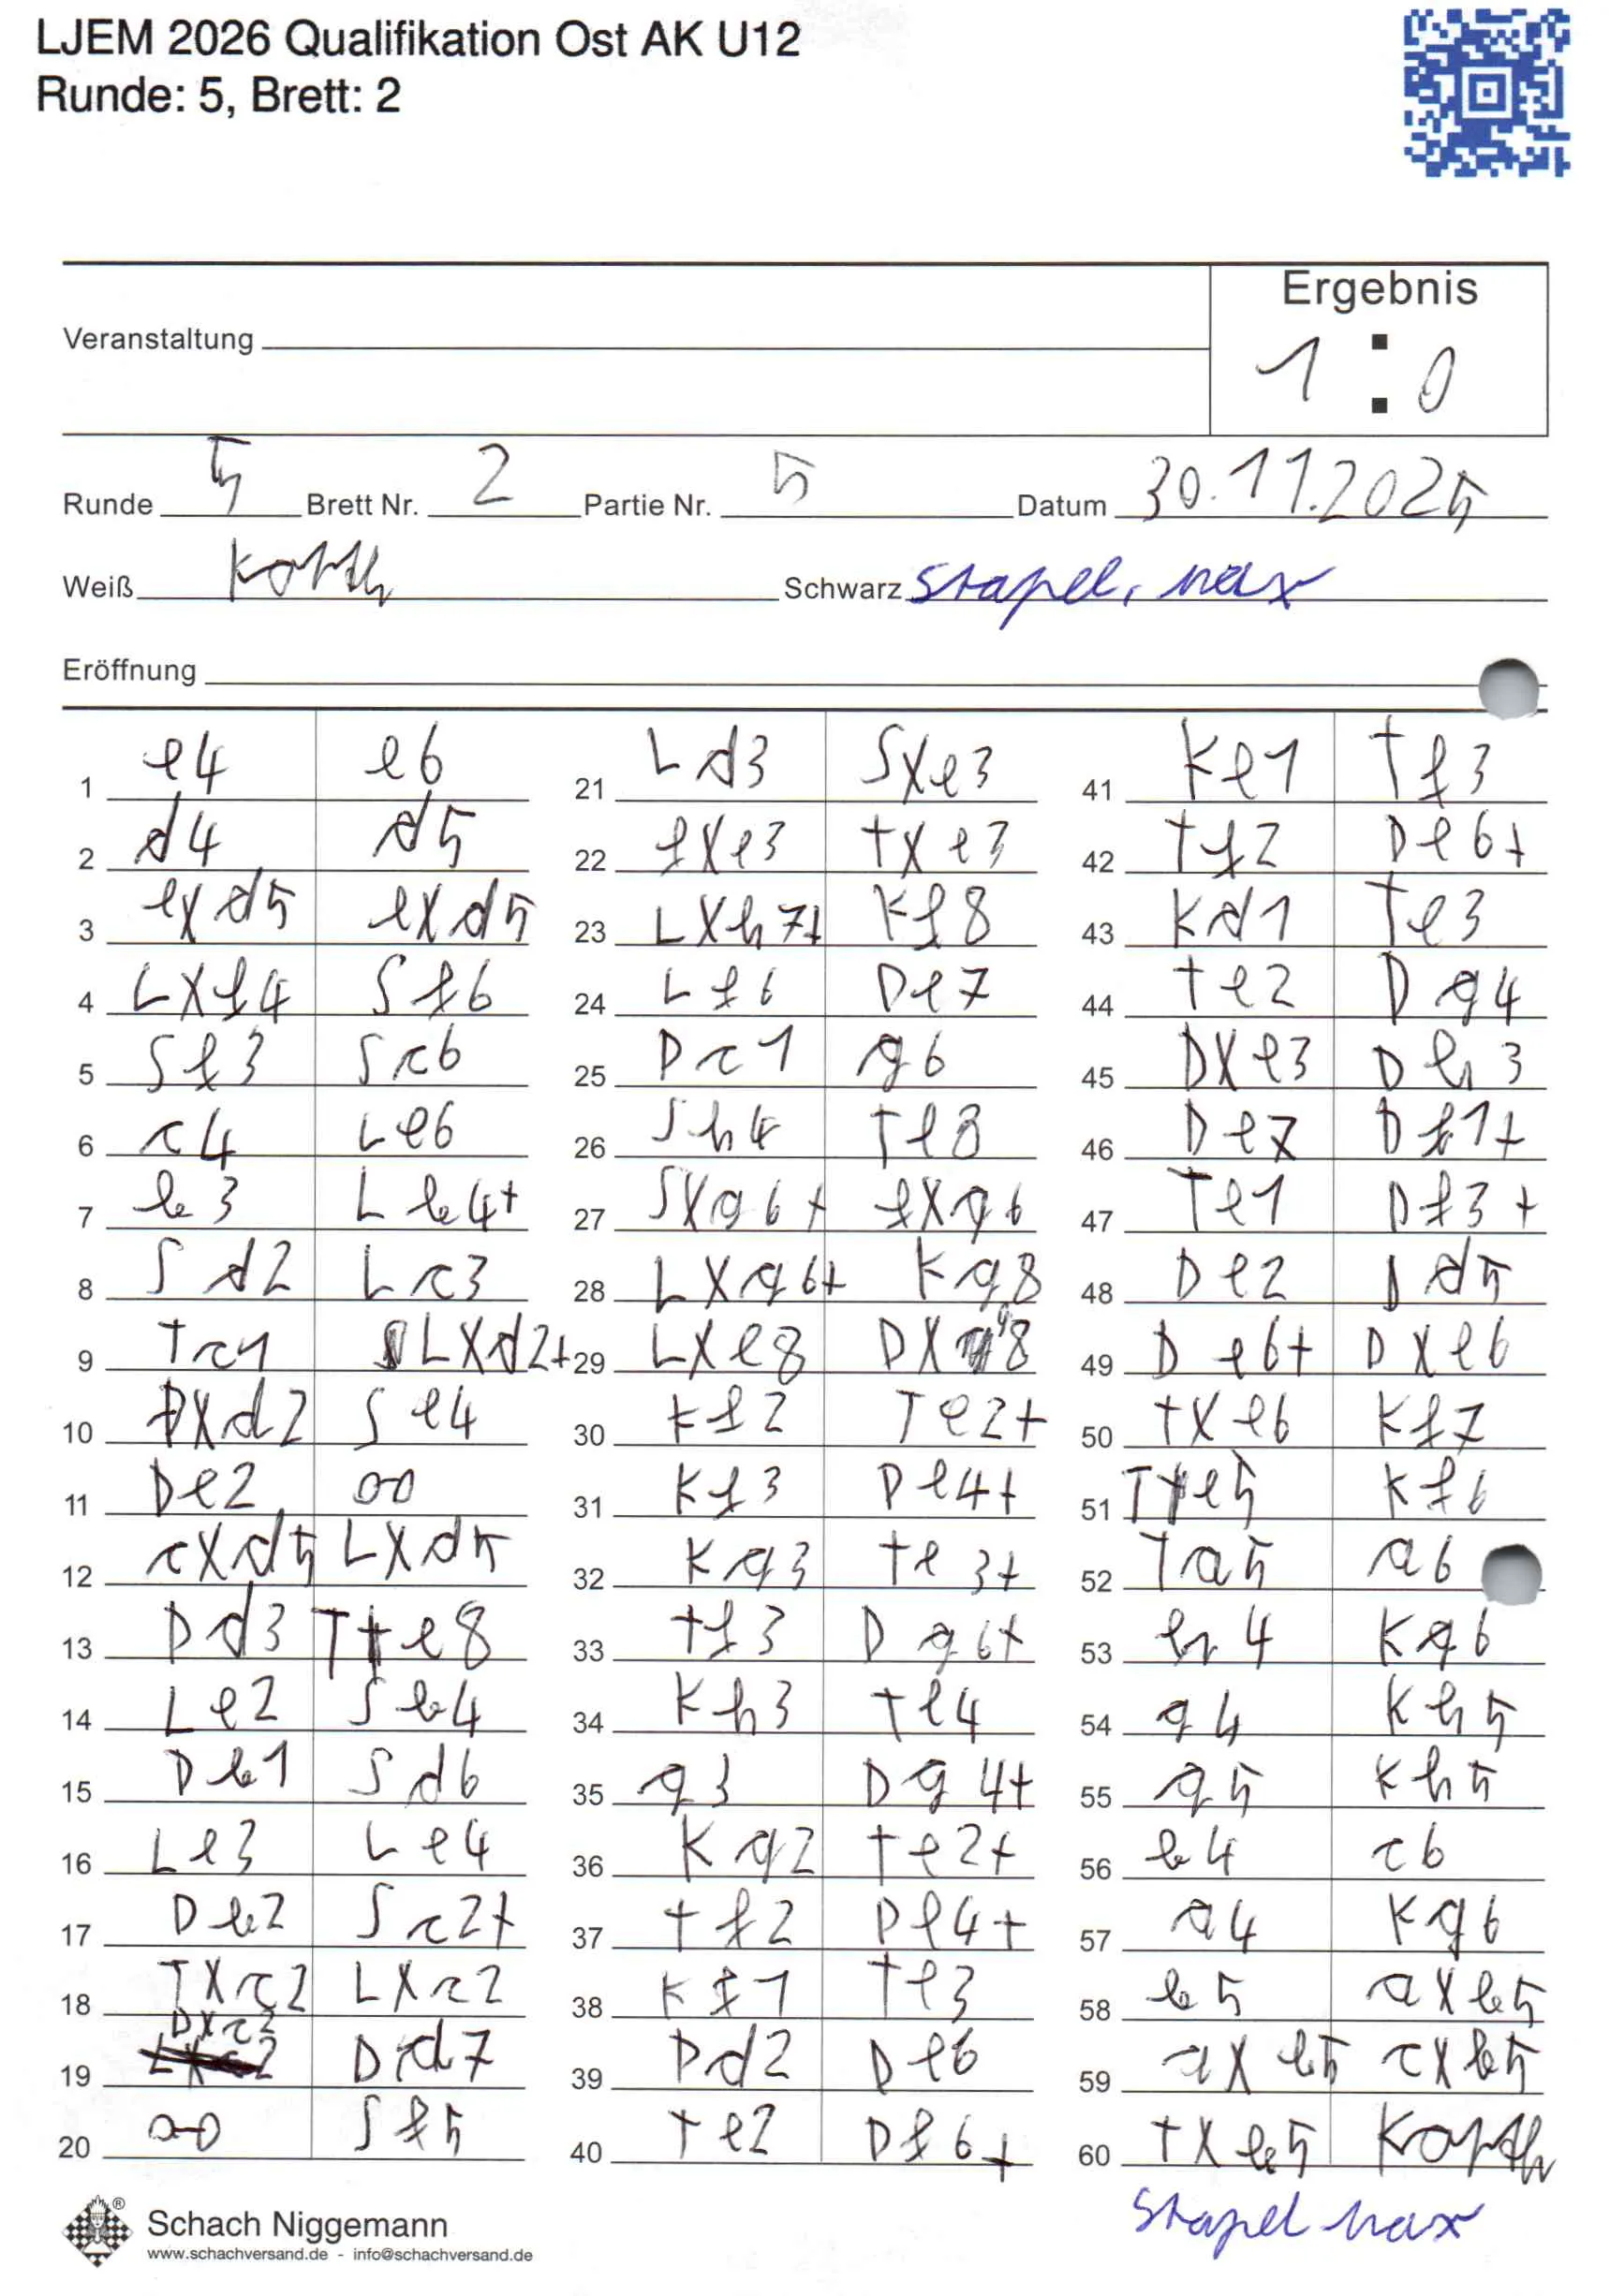 LJEM 2026 Qualifikation Ost AK U12
Runde: 5, Brett: 2
Ergebnis
Veranstaltung
1 : 0
Runde 5 Brett Nr. 2 Partie Nr. 5 Datum 30.11.2025
Weiß Schwarz Stapel, Max
Eröffnung
1 e4 e6 21 Ld3 Sxe3 41 Ke1 Tf3
2 d4 d5 22 fxe3 txe3 42 Tf2 De6+
3 exd5 exd5 23 LXh7+ Kf8 43 Kd1 Te3
4 LXf4 Sf6 24 Lf6 De7 44 te2 Dg4
5 Sf3 Sc6 25 Dc1 g6 45 DXe3 Dh3
6 c4 Le6 26 Sh4 Te8 46 De7 Df1+
7 b3 Lb4+ 27 SXg6+ fXg6 47 Te1 Df3+
8 Sd2 Lc3 28 LXg6+ Kg8 48 De2 Dd5
9 Tc1 LXd2+ 29 LXe8 DX8 49 De6+ DXe6
10 DXd2 Se4 30 Kf2 Te2+ 50 tXe6 Kf7
11 De2 00 31 Kf3 De4+ 51 Te5 Kf6
12 cXd5 LXd5 32 Kg3 te3+ 52 Ta5 a6
13 Dd3 Te8 33 tf3 Dg6+ 53 h4 Kg6
14 Le2 Sb4 34 Kh3 te4 54 g4 Kh5
15 Db1 Sd6 35 g3 Dg4+ 55 g5 Kh5
16 Le3 Le4 36 Kg2 te2+ 56 b4 c6
17 Db2 Sc2+ 37 tf2 De4+ 57 a4 Kg6
18 TXc2 LXc2 38 Kf1 Te3 58 b5 aXb5
19 DXc2 Dd7 39 Dd2 De6 59 aXb5 cXb5
20 0-0 Sf5 40 te2 Df6+ 60 tXb5
Stapel Max
®
Schach Niggemann
www.schachversand.de - info@schachversand.de